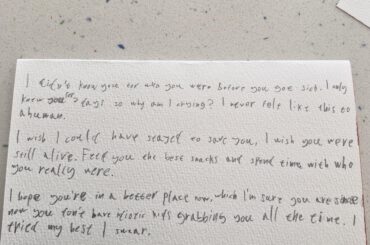 I didn't know you for who you were before you got sick. I only
knew you for 2 days so why am I crying? I never felt like this to
a human.
I wish I could have stayed to save you, I wish you were
still alive. Feed you the best snacks and spend time with who
you really were.
I hope you're in a better place now, which I'm sure you are since
now you don't have idiotic kids grabbing you all the time. I
tried my best I swear.